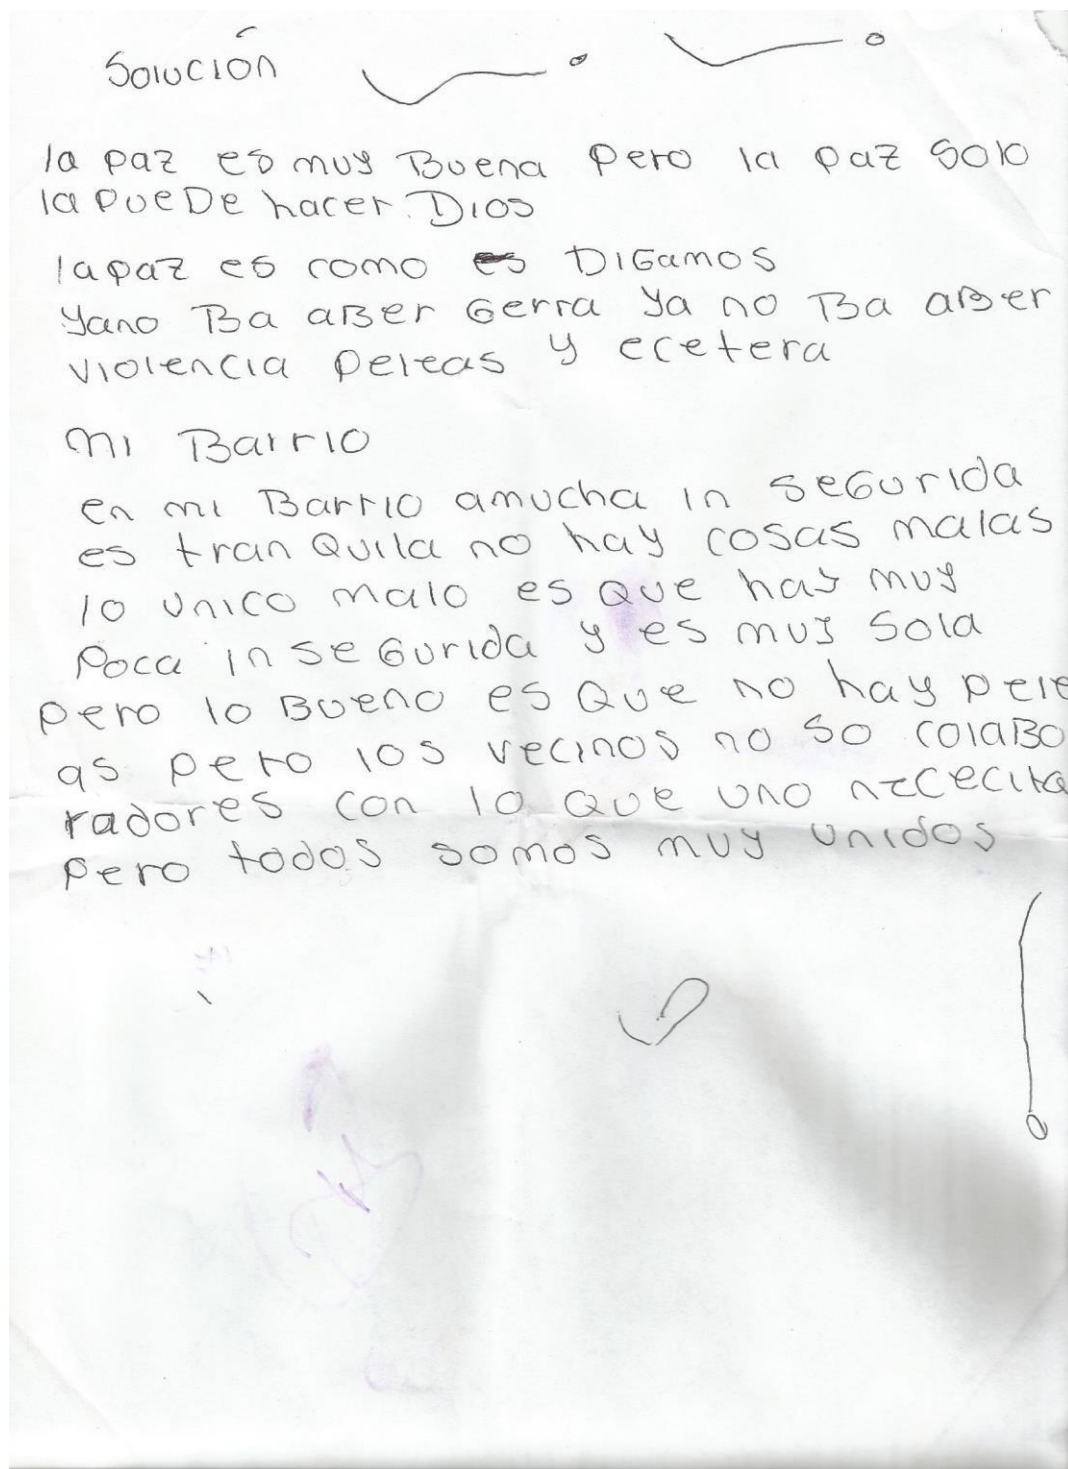 Solución
la paz es muy Buena pero la paz solo
la pueDe hacer. Dios
la paz es como es DIGamos
yano Ba aBer Gerra ya no Ba aBer
violencia peleas y ecetera
mi Barrio
en mi Barrio amucha in seGurida
es tran Quila no hay cosas malas
lo unico malo es que hay muy
poca in se Gurida y es muy sola
pero lo Bueno es Que no hay pele
as pero los vecinos no so colaBo
radores con lo Que uno nececita
pero todos somos muy unidos